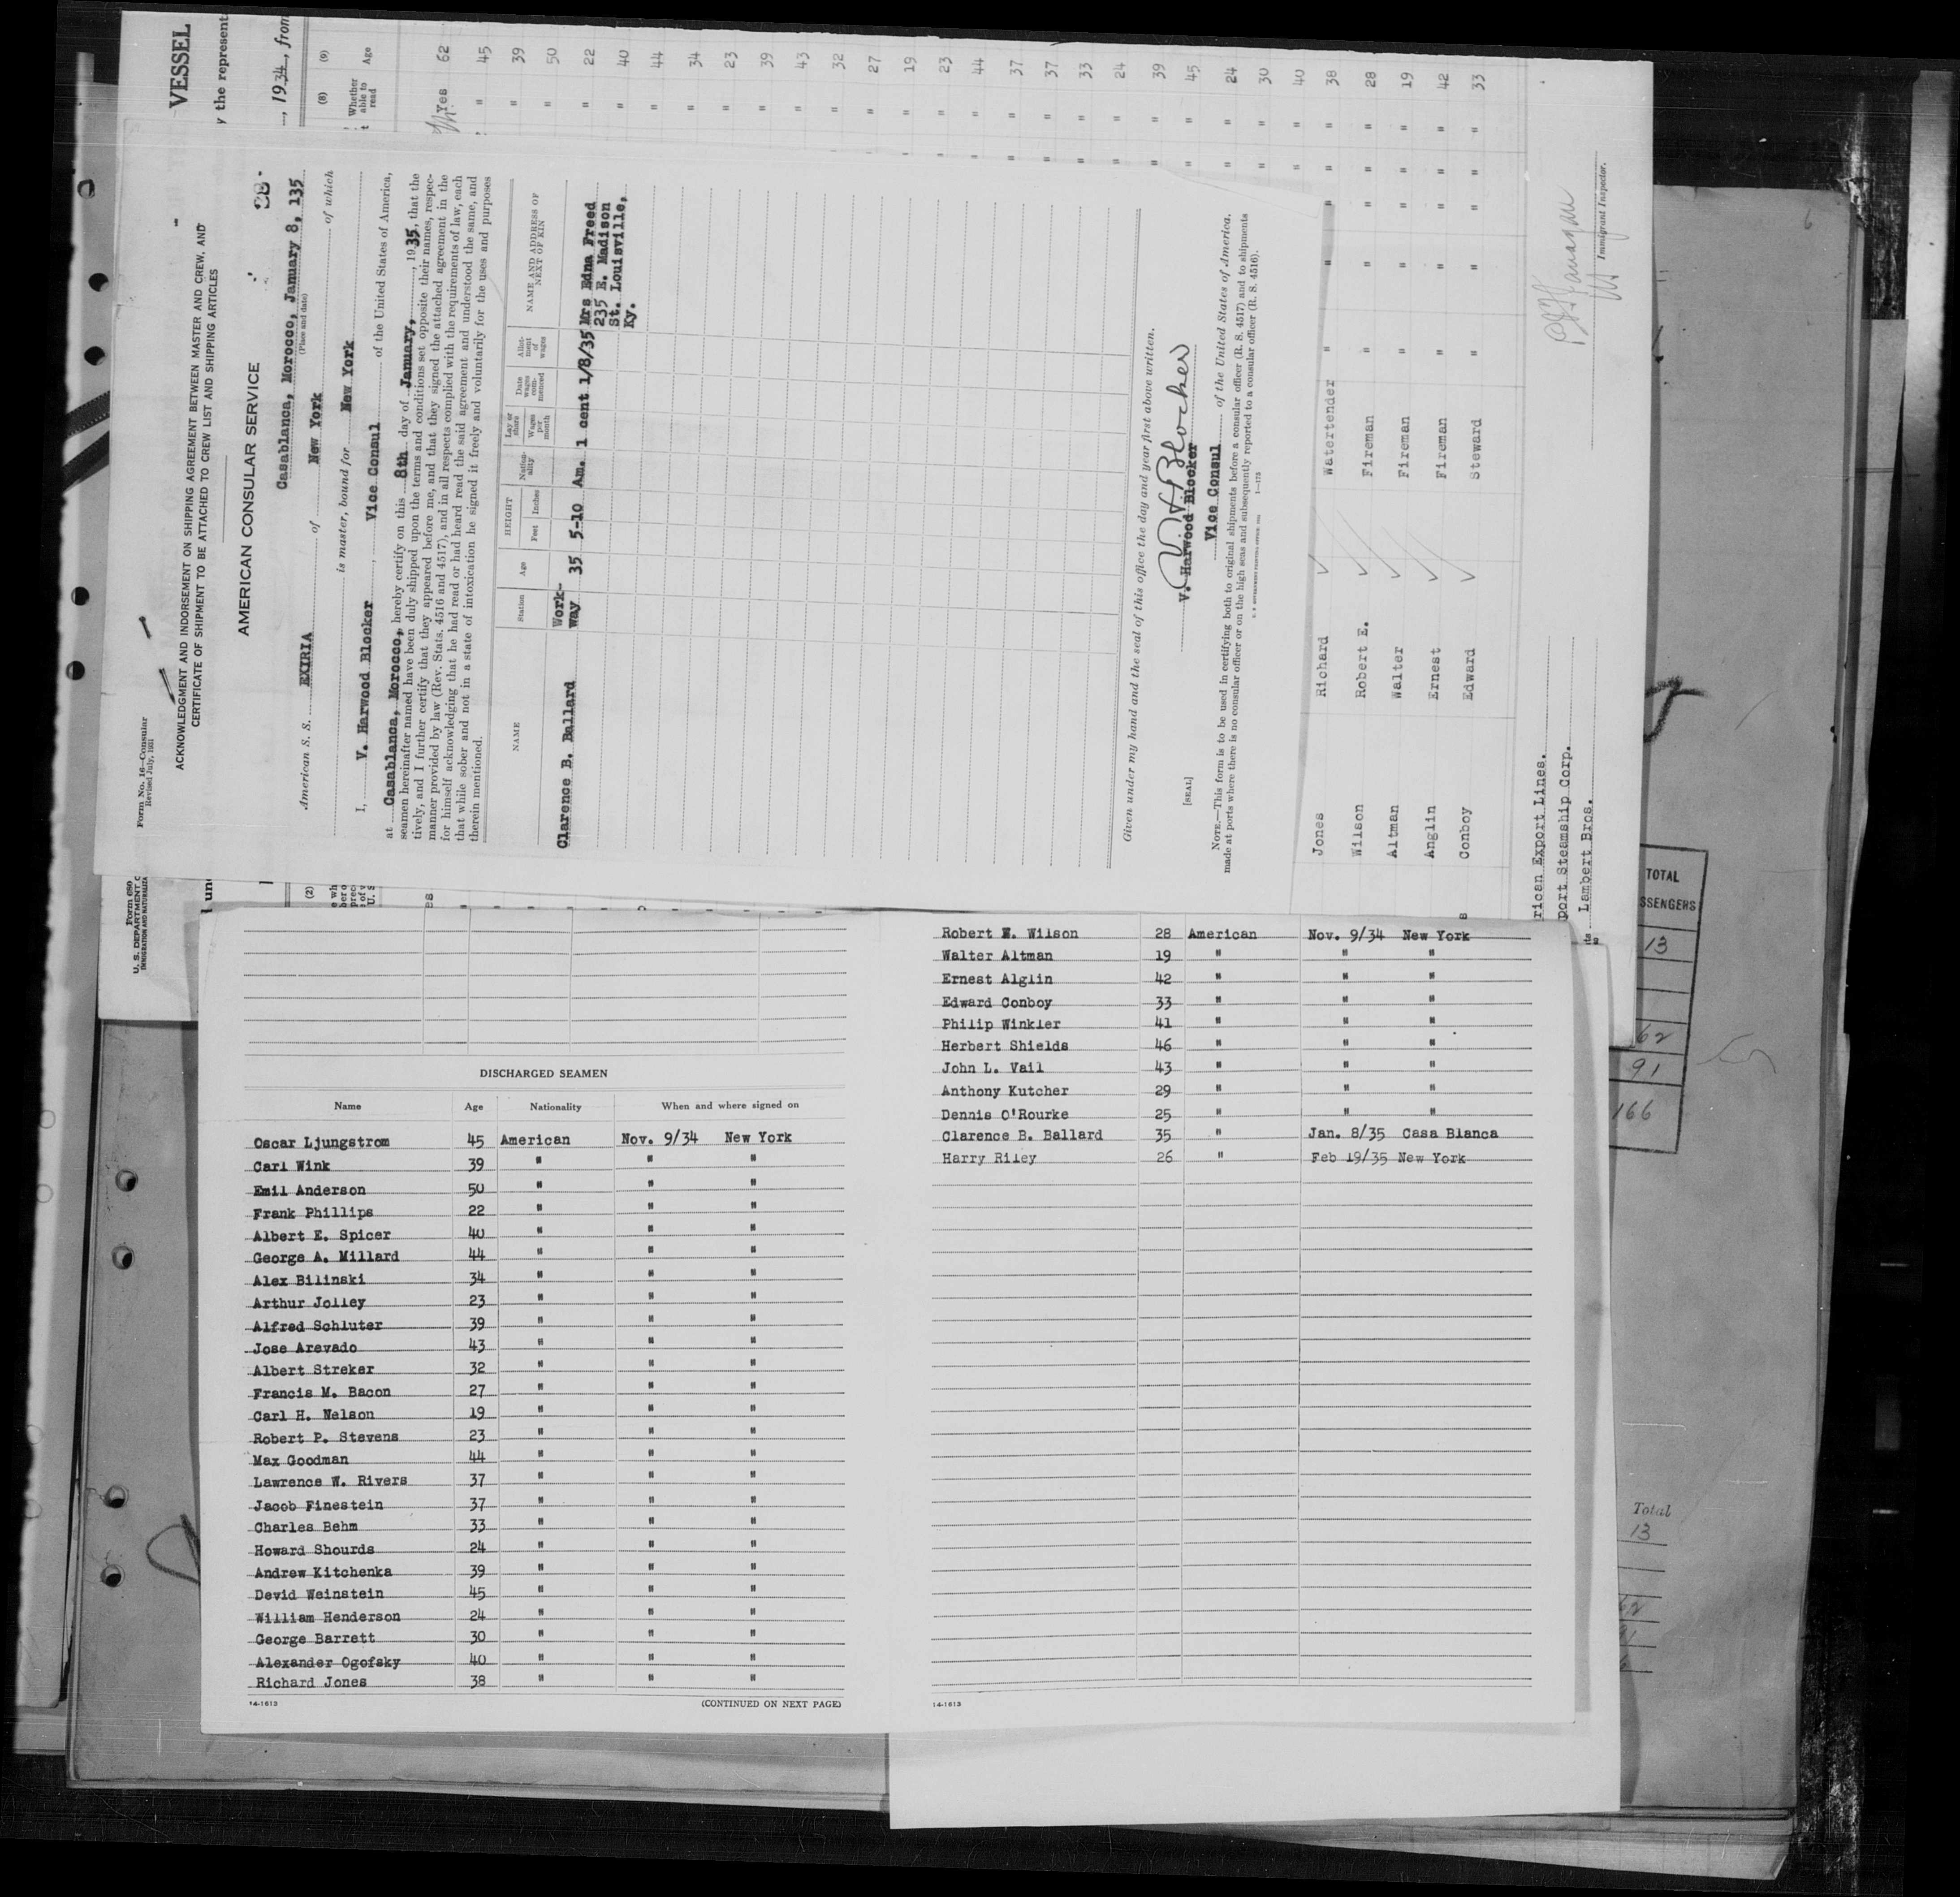 VESSEL
y the represent
, 1934, from
(8) (9)
Whether able to read Age
Yes 62
" 45
" 39
" 50
" 22
" 40
" 44
" 34
" 23
" 39
" 43
" 32
" 27
" 19
" 23
" 44
" 37
" 37
" 33
" 24
" 39
" 45
" 24
" 30
" 40
" 38
" 28
" 19
" 42
" 33
Form No. 16—Consular
Revised July, 1931
ACKNOWLEDGMENT AND INDORSEMENT ON SHIPPING AGREEMENT BETWEEN MASTER AND CREW, AND
CERTIFICATE OF SHIPMENT TO BE ATTACHED TO CREW LIST AND SHIPPING ARTICLES
AMERICAN CONSULAR SERVICE
Casablanca, Morocco, January 8, 135
(Place and date)
American S. S. EXIRIA of New York of which
is master, bound for New York
I, V. Harwood Blocker, Vice Consul of the United States of America,
at Casablanca, Morocco, hereby certify on this 8th day of January, 1935, that the
seamen hereinafter named have been duly shipped upon the terms and conditions set opposite their names, respec-
tively, and I further certify that they appeared before me, and that they signed the attached agreement in the
manner provided by law (Rev. Stats. 4516 and 4517), and in all respects complied with the requirements of law, each
for himself acknowledging that he had read or had heard read the said agreement and understood the same, and
that while sober and not in a state of intoxication he signed it freely and voluntarily for the uses and purposes
therein mentioned.
NAME Station Age HEIGHT Feet Inches Nation-ality Lay or share Wages per month Date wages com-menced Allot-ment of wages NAME AND ADDRESS OF NEXT OF KIN
Clarence B. Ballard Work-way 35 5-10 Am. 1 cent 1/8/35 Mrs Edna Freed
235 E. Madison
St. Louisville,
Ky.
Given under my hand and the seal of this office the day and year first above written.
V. Harwood Blocker
[SEAL]
Vice Consul of the United States of America.
NOTE.—This form is to be used in certifying both to original shipments before a consular officer (R. S. 4517) and to shipments
made at ports where there is no consular officer or on the high seas and subsequently reported to a consular officer (R. S. 4516).
Jones Richard Watertender " "
Wilson Robert E. Fireman " "
Altman Walter Fireman " "
Anglin Ernest Fireman " "
Conboy Edward Steward " "
rican Export Lines.
port Steamship Corp.
Lambert Bros.
Immigrant Inspector.
Form 680
U. S. DEPARTMENT O
IMMIGRATION AND NATURALIZA
(2)
DISCHARGED SEAMEN
Name Age Nationality When and where signed on
Oscar Ljungstrom 45 American Nov. 9/34 New York
Carl Wink 39 " " "
Emil Anderson 50 " " "
Frank Phillips 22 " " "
Albert E. Spicer 40 " " "
George A. Millard 44 " " "
Alex Bilinski 34 " " "
Arthur Jolley 23 " " "
Alfred Schluter 39 " " "
Jose Arevado 43 " " "
Albert Streker 32 " " "
Francis M. Bacon 27 " " "
Carl H. Nelson 19 " " "
Robert P. Stevens 23 " " "
Max Goodman 44 " " "
Lawrence W. Rivers 37 " " "
Jacob Finestein 37 " " "
Charles Behm 33 " " "
Howard Shourds 24 " " "
Andrew Kitchenka 39 " " "
Devid Weinstein 45 " " "
William Henderson 24 " " "
George Barrett 30 " " "
Alexander Ogofsky 40 " " "
Richard Jones 38 " " "
14-1613 (CONTINUED ON NEXT PAGE)
Robert E. Wilson 28 American Nov. 9/34 New York
Walter Altman 19 " " "
Ernest Alglin 42 " " "
Edward Conboy 33 " " "
Philip Winkler 41 " " "
Herbert Shields 46 " " "
John L. Vail 43 " " "
Anthony Kutcher 29 " " "
Dennis O'Rourke 25 " " "
Clarence B. Ballard 35 " Jan. 8/35 Casa Blanca
Harry Riley 26 " Feb 19/35 New York
14-1613
TOTAL
SSENGERS
13
62
91
166
Total
13